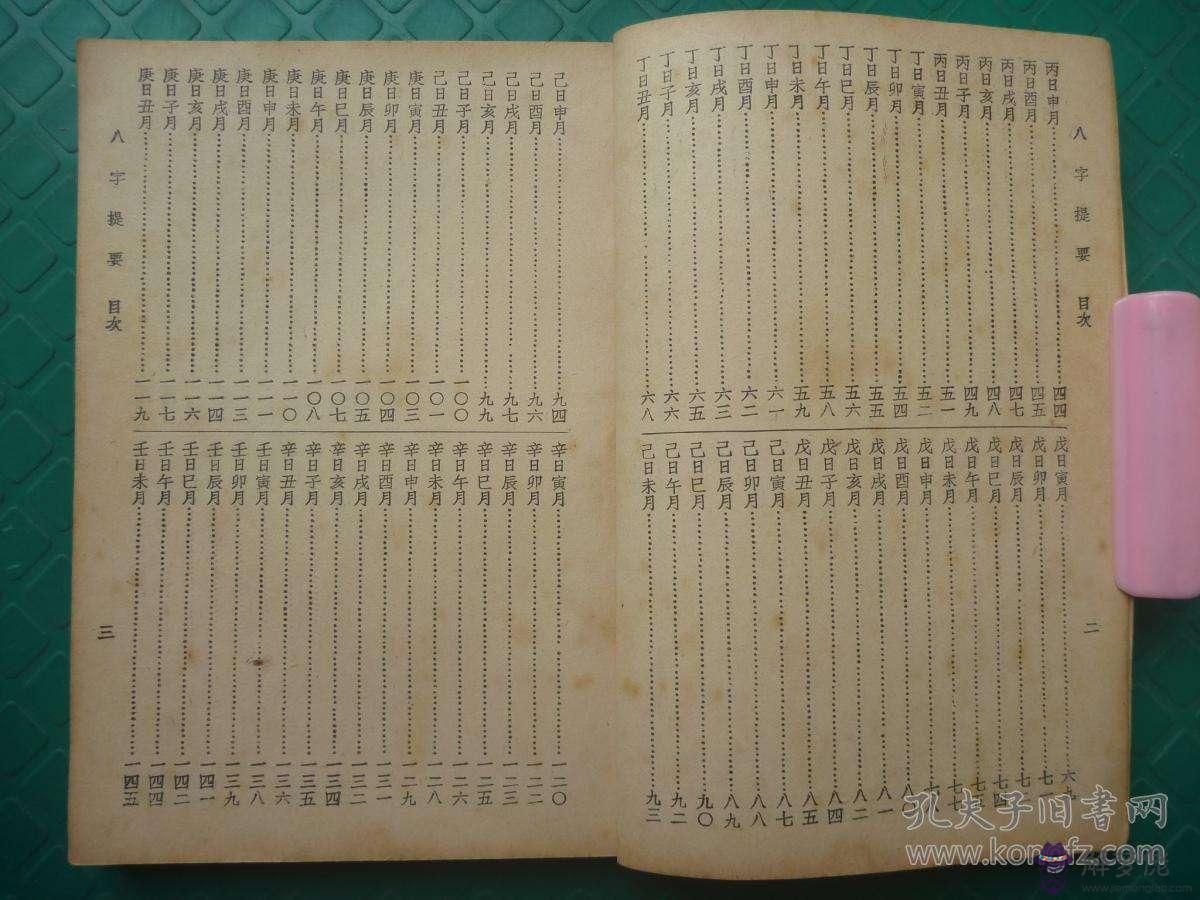 八字提要 目次
丙日申月……四四
丙日酉月……四五
丙日戌月……四七
丙日亥月……四八
丙日子月……四九
丙日丑月……五一
丁日寅月……五二
丁日卯月……五四
丁日辰月……五五
丁日巳月……五六
丁日午月……五八
丁日未月……五九
丁日申月……六一
丁日酉月……六二
丁日戌月……六三
丁日亥月……六五
丁日子月……六六
丁日丑月……六八
戊日寅月……六九
戊日卯月……七一
戊日辰月……七
戊日巳月……七
戊日午月……七五
戊日未月……七七
戊日申月……七
戊日酉月……八
戊日戌月……八一
戊日亥月……八二
戊日子月……八四
戊日丑月……八五
己日寅月……八七
己日卯月……八八
己日辰月……八九
己日巳月……九〇
己日午月……九二
己日未月……九三
二
己日申月……九四
己日酉月……九六
己日戌月……九七
己日亥月……九九
己日子月……一〇〇
己日丑月……一〇一
庚日寅月……一〇三
庚日卯月……一〇四
庚日辰月……一〇五
庚日巳月……一〇七
庚日午月……一〇八
庚日未月……一一〇
庚日申月……一一一
庚日酉月……一一三
庚日戌月……一一四
庚日亥月……一一六
庚日子月……一一七
庚日丑月……一一九
辛日寅月……一二〇
辛日卯月……一二二
辛日辰月……一二三
辛日巳月……一二五
辛日午月……一二六
辛日未月……一二八
辛日申月……一二九
辛日酉月……一三一
辛日戌月……一三二
辛日亥月……一三四
辛日子月……一三五
辛日丑月……一三六
壬日寅月……一三八
壬日卯月……一三九
壬日辰月……一四一
壬日巳月……一四二
壬日午月……一四四
壬日未月……一四五
八字提要 目次
三
孔夫子旧书网